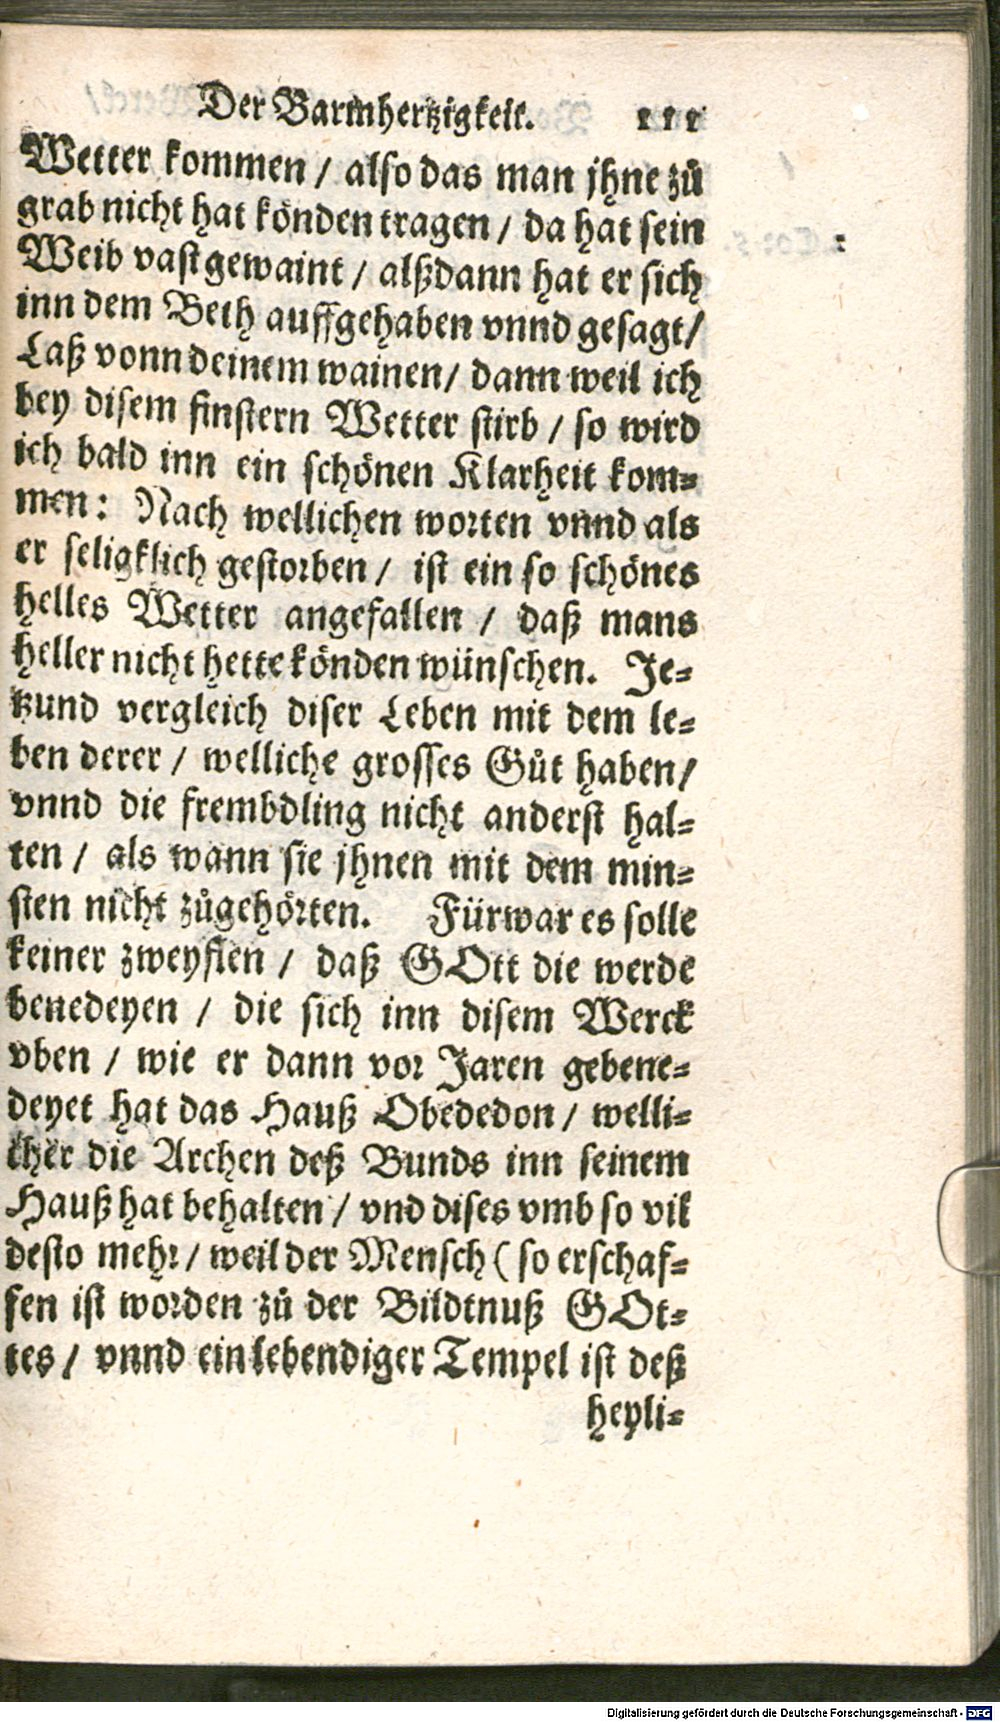 Der Barmhertzigkeit. 111
Wetter kommen / also das man jhne zů
grab nicht hat könden tragen / da hat sein
Weib vast gewaint / alßdann hat er sich
inn dem Beth auffgehaben vnnd gesagt /
Laß vonn deinem wainen / dann weil ich
bey disem finstern Wetter stirb / so wird
ich bald inn ein schönen Klarheit kom-
men: Nach wellichen worten vnnd als
er seligklich gestorben / ist ein so schönes
helles Wetter angefallen / daß mans
heller nicht hette könden wünschen. Je-
tzund vergleich diser Leben mit dem le-
ben derer / welliche grosses Gůt haben /
vnnd die frembdling nicht anderst hal-
ten / als wann sie jhnen mit dem min-
sten nicht zůgehörten. Fürwar es solle
keiner zweyflen / daß GOtt die werde
benedeyen / die sich inn disem Werck
vben / wie er dann vor Jaren gebene-
deyet hat das Hauß Obededon / welli-
cher die Archen deß Bunds inn seinem
Hauß hat behalten / vnd dises vmb so vil
desto mehr / weil der Mensch ( so erschaf-
fen ist worden zů der Bildtnuß GOt-
tes / vnnd ein lebendiger Tempel ist deß
heyli-
Digitalisierung gefördert durch die Deutsche Forschungsgemeinschaft - DFG